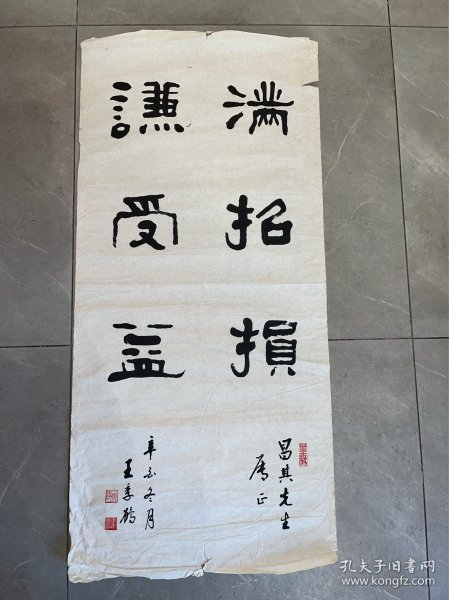 满招損
謙受益
昌其先生
属正
辛酉冬月
王季鹤
孔夫子旧书网
www.kongfz.com